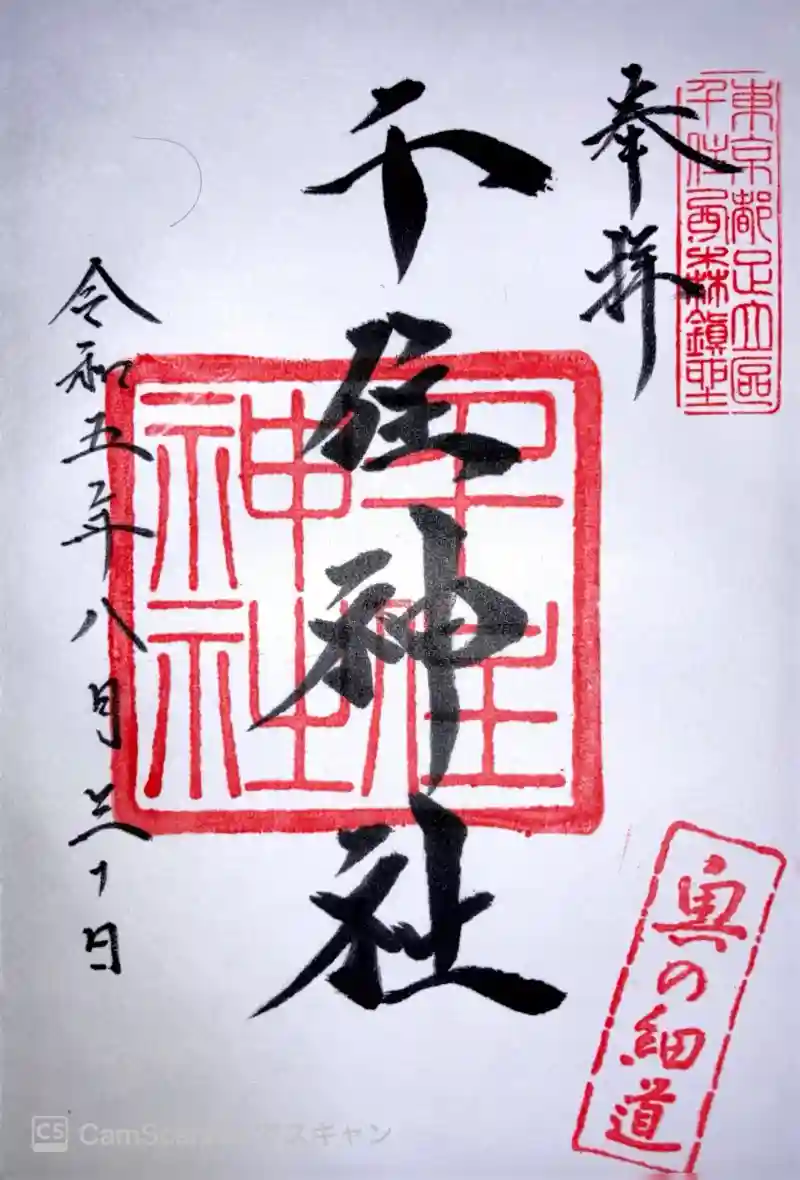 東京都足立區
千住西森鎮座
奉拝
千住神社
千住
神社
令和五年八月三十日
奥の細道
CS CamScanner スキャン